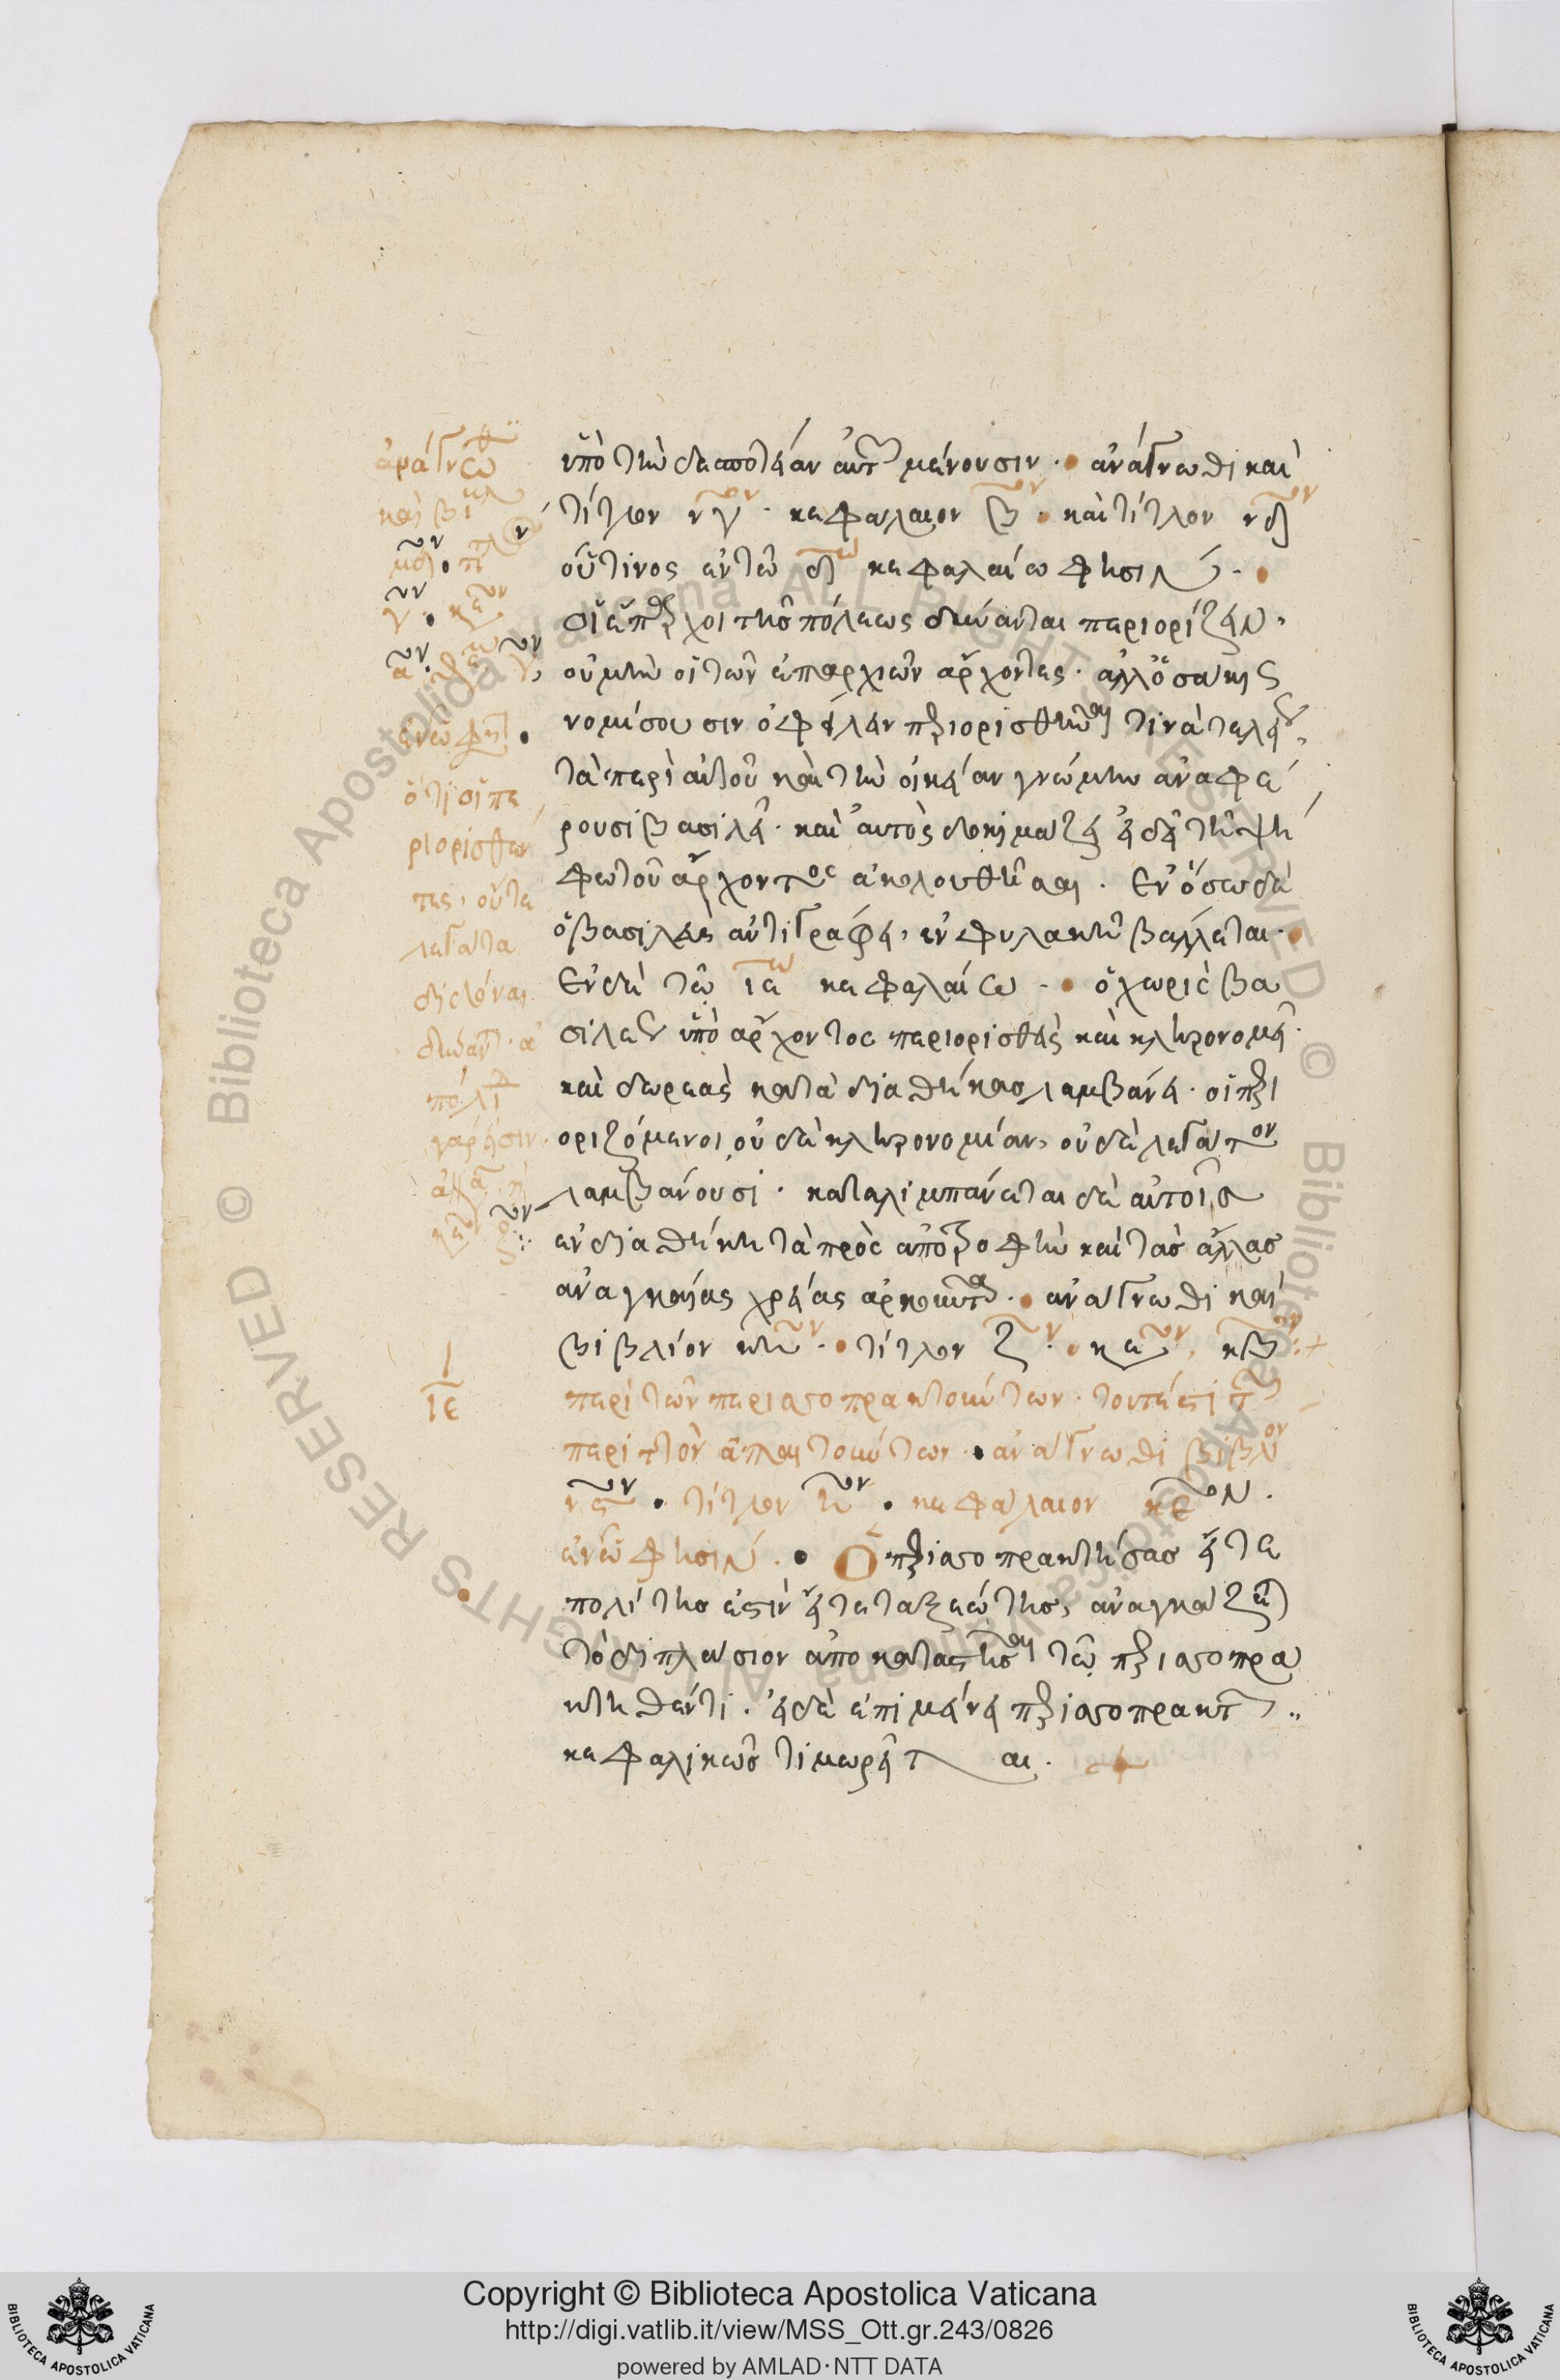 ὑπὸ τὴν δεσποτείαν αὐτ μένουσιν · ἀνάγνωθι καὶ
τίτλον νγον · κεφάλαιον βον · καὶ τίτλον νδον
οὗτινος ἐν τῶ δω κεφαλαίω φησίν ·
οἱ ἔπαρχοι τῆς πόλεως δύνανται περιορίζειν ·
οὐ μὴν οἱ τῶν ἐπαρχιῶν ἄρχοντες · ἀλλ' ὁσάκις
νομίσουσιν ὀφείλειν περιορισθῆναι τινὰ
τὰ περὶ αὐτοῦ καὶ τὴν οἰκείαν γνώμην ἀναφέ
ρουσι βασιλεῖ · καὶ αὐτὸς δοκιμάζει εἰ δεῖ τῆ ψή
φω τοῦ ἄρχοντος ἀκολουθῆσαι · Ἐν ὅσω δὲ
ὁ βασιλεὺς ἀντιγράφει, ἐν φυλακῆ βάλλεται ·
Ἐν δὲ τῶ ιαω κεφαλαίω · ὁ χωρὶς βα
σιλέως ὑπὸ ἄρχοντος περιορισθεὶς καὶ κληρονομεῖ ·
καὶ δωρεὰς κατὰ διαθήκας λαμβάνει · οἱ περι
οριζόμενοι οὐδὲ κληρονομίαν, οὐδὲ λεγάτον
λαμβάνουσι · καταλιμπάνεται δὲ αὐτοῖς
ἐν διαθήκη τὰ πρὸς ἀποτροφὴν καὶ τὰς ἄλλας
ἀναγκαίας χρείας ἀρκοῦντα · ἀνάγνωθι καὶ
βιβλίον κηον · τίτλον ζον · κεον κβον :+
περὶ τῶν περιασοπρακτούντων · τουτέστι
περὶ τῶν ἀπλητούντων · ἀνάγνωθι βιβλίον
νςον · τίτλον ηον · κεφάλαιον κεον ·
ἐν ὧ φησίν · Ὁ περιασοπρακτήσας εἴτε
πολίτης ἐστὶν εἴτε ταξεώτης, ἀναγκάζεται
τὸ διπλάσιον ἀποκαταστῆσαι τῶ περιασοπρα
κτηθέντι · εἰ δὲ ἐπιμένει περιασοπρακτ
κεφαλικῶς τιμωρεῖται ·
ἀνάγνω
καὶ βι
ἐν ὧ φησὶ
ὅτι οἱ πε
ριορισθέν
τες · οὔτε
λεγάτα
διδόναι
δύνανται
πόλ
γάρ εἰσιν
ιε
Copyright © Biblioteca Apostolica Vaticana
http://digi.vatlib.it/view/MSS_Ott.gr.243/0826
powered by AMLAD·NTT DATA